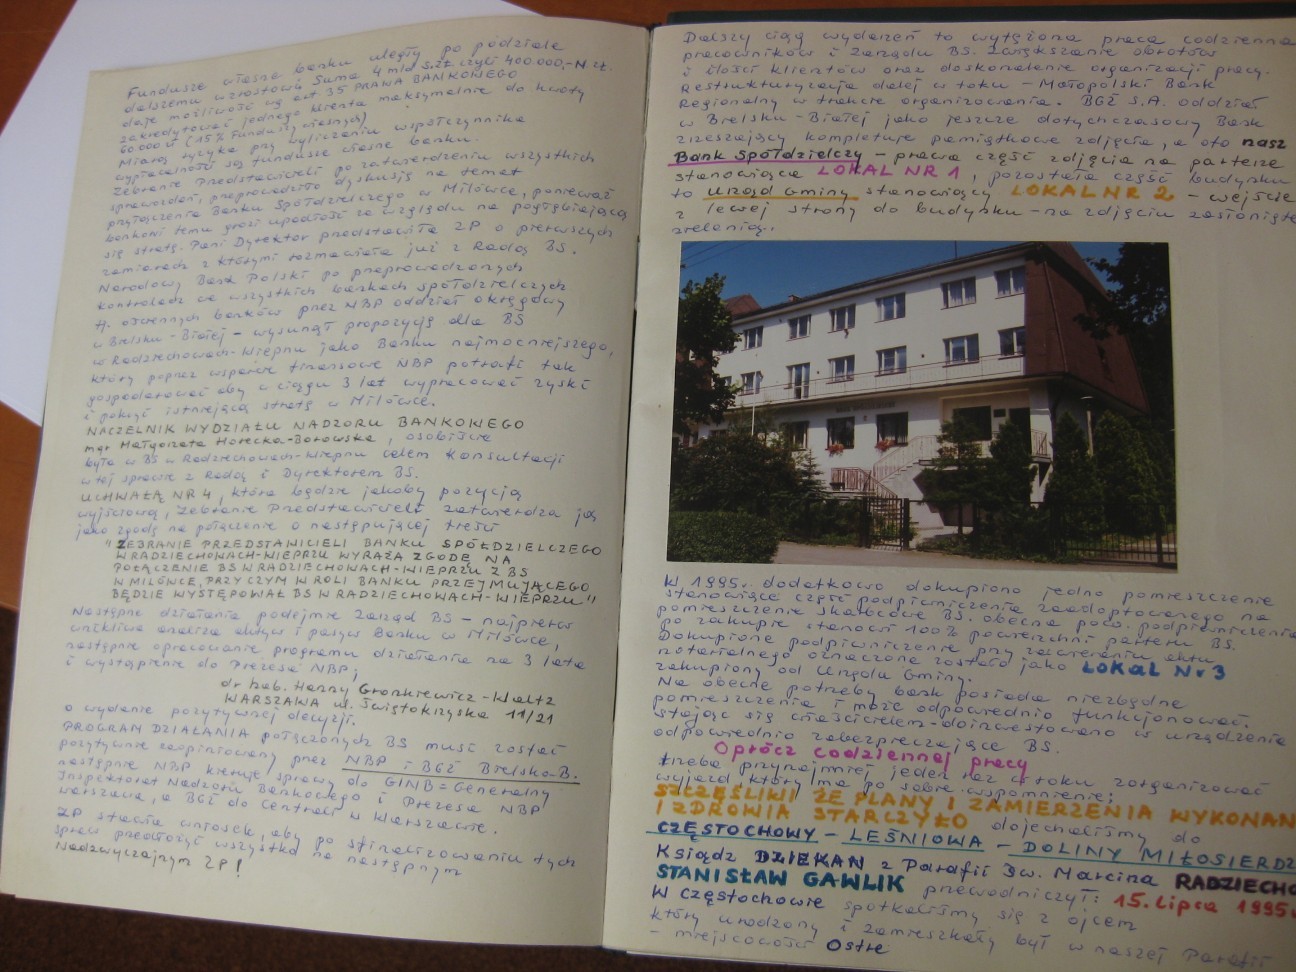 Fundusze własne banku uległy po podziale
dalszemu wzrostowi. Suma 4 mld s.zł czyli 400.000,-N zł.
daje możliwość wg art 35 PRAWA BANKOWEGO
zakredytować jednego klienta maksymalnie do kwoty
60.000 zł (15% Funduszy własnych)
Miarą ryzyka przy wyliczaniu współczynnika
wypłacalności są fundusze własne banku.
Zebranie Przedstawicieli po zatwierdzeniu wszystkich
sprawozdań, przeprowadziło dyskusję na temat
przyłączenia Banku Spółdzielczego w Milówce, ponieważ
bankowi temu grozi upadłość ze względu na pogłębiającą
się stratę. Pani Dyrektor przedstawiła ZP o pierwszych
zamiarach z którymi rozmawiała już z Radą BS.
Narodowy Bank Polski po przeprowadzonych
kontrolach we wszystkich bankach spółdzielczych
tj. ościennych banków przez NBP oddział okręgowy
w Bielsku-Białej - wysunął propozycję dla BS
w Radziechowach-Wieprzu jako Banku najmocniejszego,
który poprzez wsparcie finansowe NBP potrafi tak
gospodarować aby w ciągu 3 lat wypracować zyski
i pokryć istniejącą stratę w Milówce.
NACZELNIK WYDZIAŁU NADZORU BANKOWEGO
mgr Małgorzata Horecka-Borowska, osobiście
była w BS w Radziechowach-Wieprzu celem konsultacji
w tej sprawie z Radą i Dyrektorem BS.
UCHWAŁĄ NR 4, która będzie jakoby pozycją
wyjściową, Zebranie Przedstawicieli zatwierdza ją
jako zgodę na połączenie o następującej treści
"ZEBRANIE PRZEDSTAWICIELI BANKU SPÓŁDZIELCZEGO
W RADZIECHOWACH-WIEPRZU WYRAŻA ZGODĘ NA
POŁĄCZENIE BS W RADZIECHOWACH-WIEPRZU Z BS
W MILÓWCE, PRZY CZYM W ROLI BANKU PRZEJMUJĄCEGO
BĘDZIE WYSTĘPOWAŁ BS W RADZIECHOWACH-WIEPRZU"
Następne działania podejmie Zarząd BS - najpierw
wnikliwa analiza aktyw i pasyw Banku w Milówce,
następnie opracowanie programu działania na 3 lata
i wystąpienie do Prezesa NBP;
dr hab. Hanny Gronkiewicz-Waltz
WARSZAWA ul. Świętokrzyska 11/21
o wydanie pozytywnej decyzji.
PROGRAM DZIAŁANIA połączonych BS musi zostać
pozytywnie zaopiniowany przez NBP i BGŻ Bielsko-B.
następnie NBP kieruje sprawy do GINB = Generalny
Inspektorat Nadzoru Bankowego i Prezesa NBP
Warszawa, a BGŻ do Centrali w Warszawie.
ZP stawia wniosek, aby po sfinalizowaniu tych
spraw przedłożyć wszystko na następnym
Nadzwyczajnym ZP!
Dalszy ciąg wydarzeń to wytężona praca codzienna
pracowników i Zarządu BS. Zwiększanie obrotów
i ilości klientów oraz doskonalenie organizacji pracy.
Restrukturyzacja dalej w toku - Małopolski Bank
Regionalny w trakcie organizowania. BGŻ S.A. oddział
w Bielsku-Białej jako jeszcze dotychczasowy Bank
zrzeszający kompletuje pamiątkowe zdjęcia, a oto nasz
Bank Spółdzielczy - prawa część zdjęcia na parterze
stanowiąca LOKAL NR 1, pozostała część budynku
to Urząd Gminy stanowiący LOKAL NR 2 - wejście
z lewej strony do budynku - na zdjęciu zasłonięte
zielenią.
W 1995r. dodatkowo dokupiono jedno pomieszczenie
stanowiące część podpiwniczenia zaadoptowanego na
pomieszczenie skarbcowe BS. obecna pow. podpiwniczenia
po zakupie stanowi 100% powierzchni parteru BS.
Dokupione podpiwniczenie przy zawieraniu aktu
notarialnego oznaczone zostało jako LOKAL Nr 3
zakupiony od Urzędu Gminy.
Na obecne potrzeby bank posiada niezbędne
pomieszczenia i może odpowiednio funkcjonować.
Stając się właścicielem - doinwestowano w urządzenia
odpowiednio zabezpieczające BS.
Oprócz codziennej pracy
trzeba przynajmniej jeden raz w roku zorganizować
wyjazd, który ma po sobie wspomnienie;
SZCZĘŚLIWI ŻE PLANY I ZAMIERZENIA WYKONAN
I ZDROWIA STARCZYŁO dojechaliśmy do
CZĘSTOCHOWY - LEŚNIOWA - DOLINY MIŁOSIERDZ
Ksiądz DZIEKAN z Parafii Św. Marcina RADZIECHO
STANISŁAW GAWLIK przewodniczył: 15. Lipca 1995
W CZĘSTOCHOWIE spotkaliśmy się z ojcem
który urodzony i zamieszkały był w naszej Parafii
- miejscowości Ostre